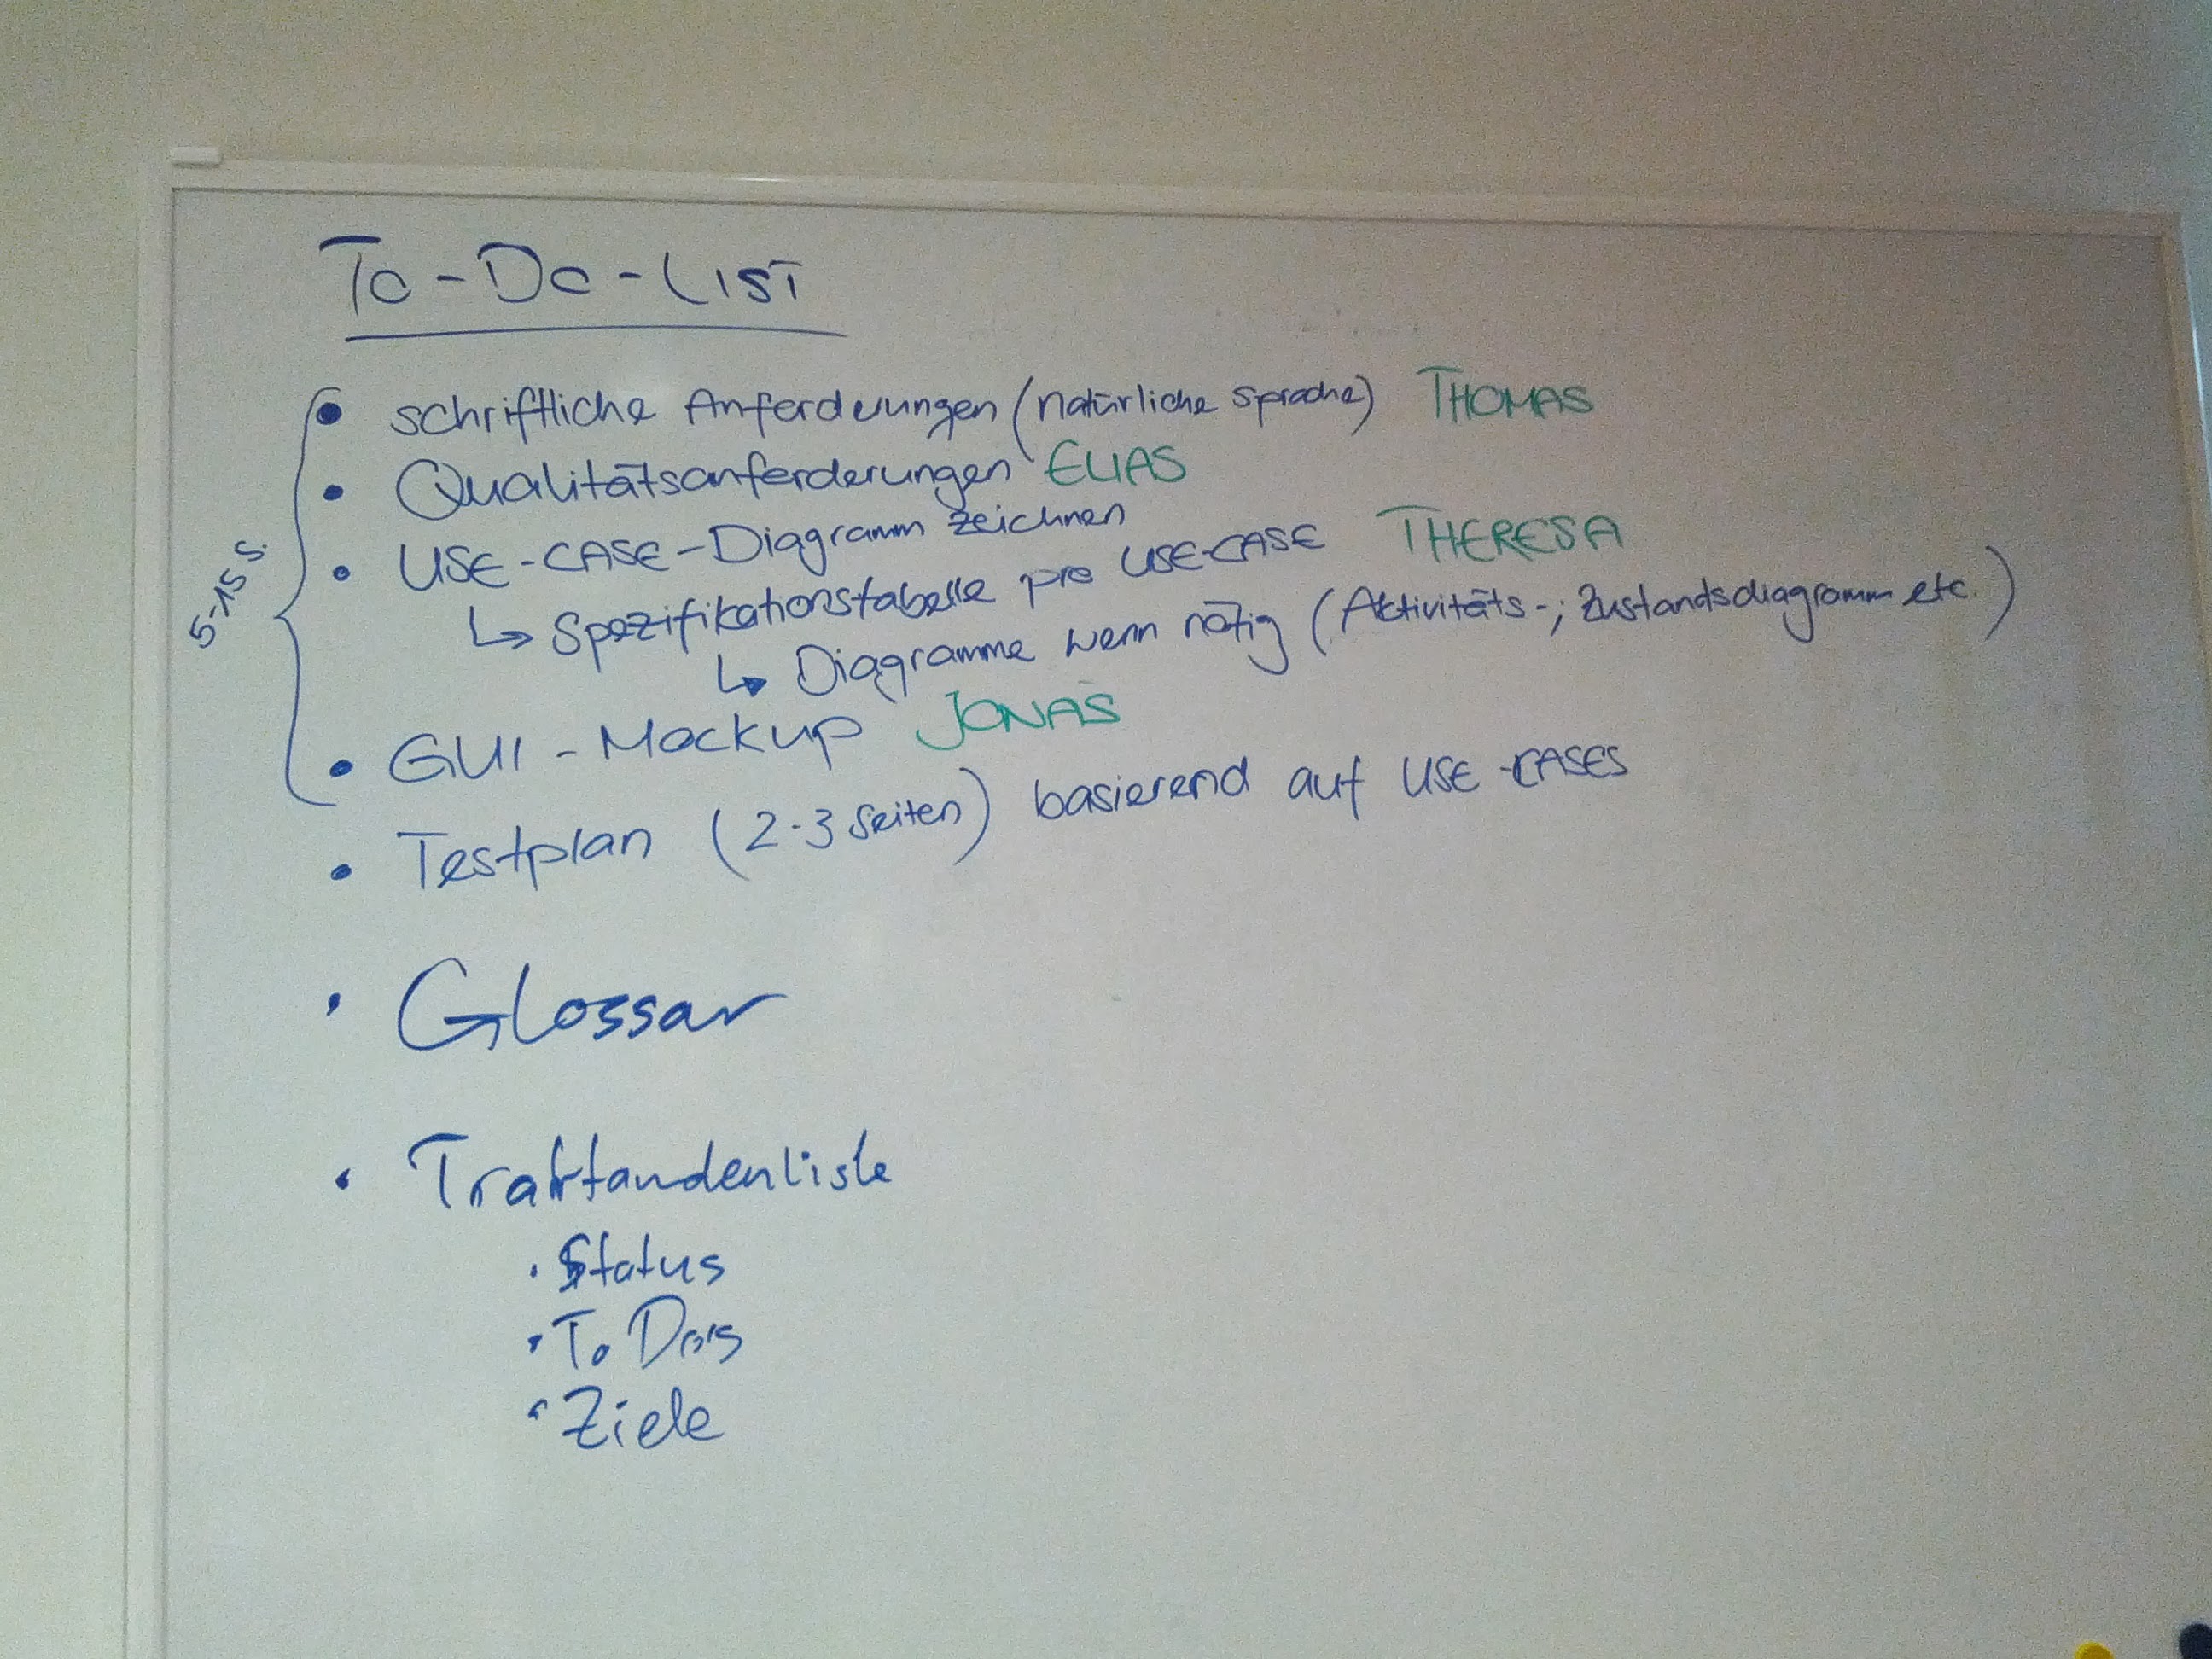 To-Do-List
5-15 S.
• schriftliche Anforderungen (natürliche Sprache) THOMAS
• Qualitätsanforderungen ELIAS
• USE-CASE-Diagramm zeichnen
↳ Spezifikationstabelle pro USE-CASE THERESA
↳ Diagramme wenn nötig (Aktivitäts-; Zustandsdiagramm etc.)
• GUI-Mockup JONAS
• Testplan (2-3 Seiten) basierend auf USE-CASES
• Glossar
• Traktandenliste
• Status
• To Do's
• Ziele